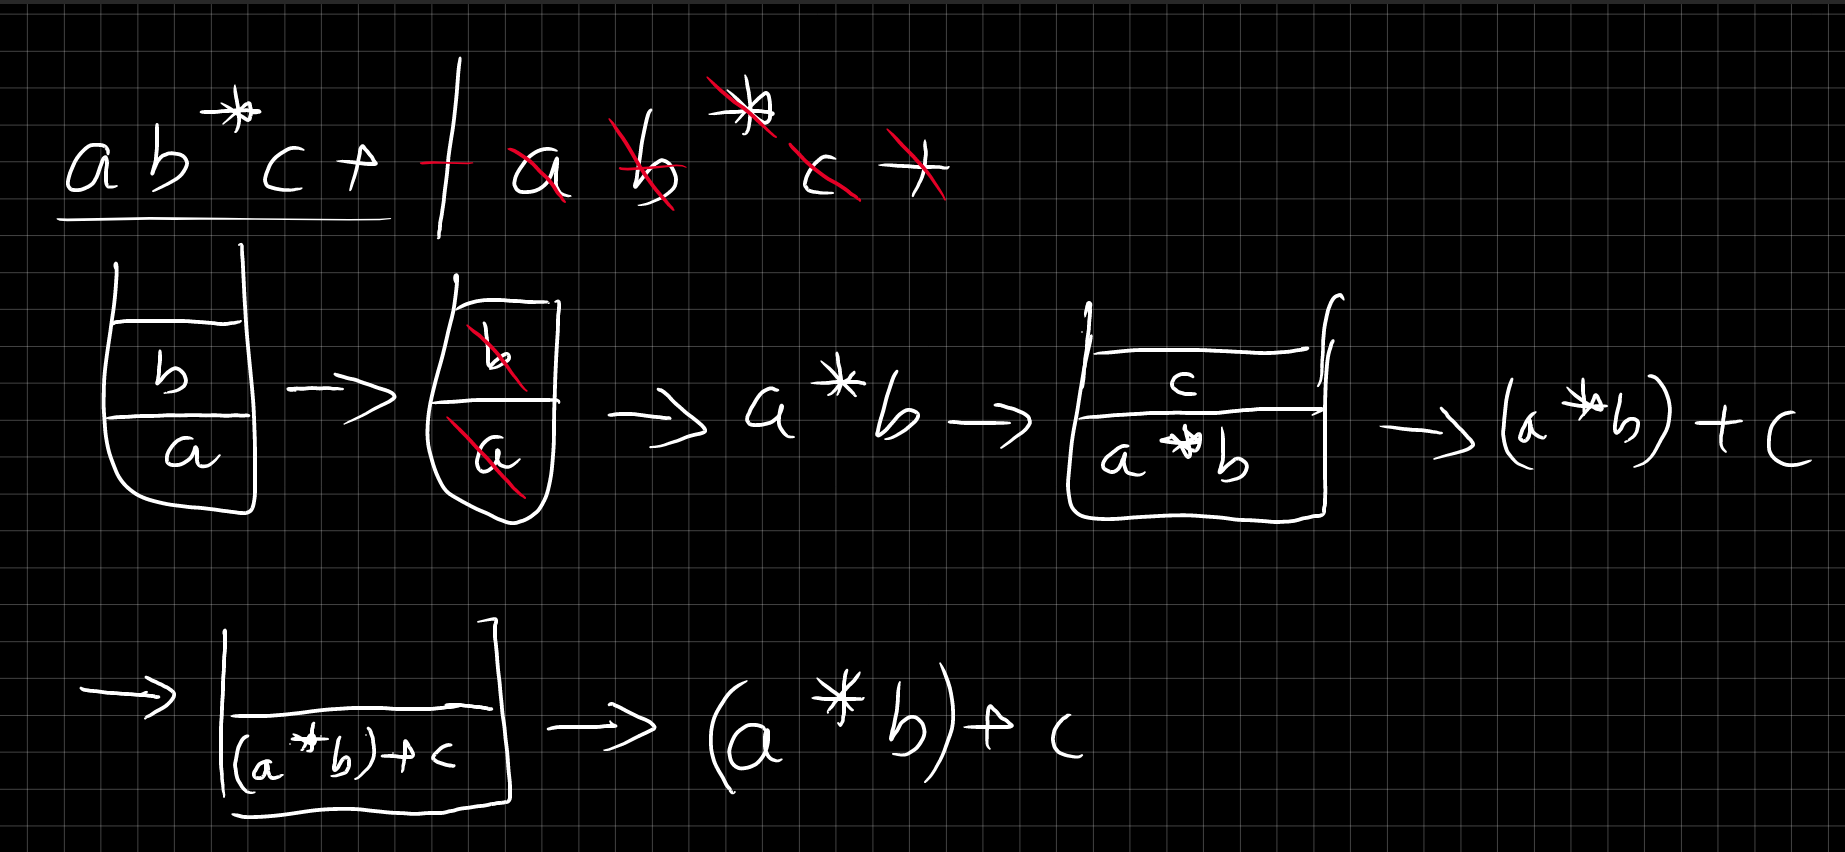 ab*c+ | a b * c +
b
a
→
b
a
→ a * b →
c
a * b
→ (a * b) + c
→
(a * b) + c
→ (a * b) + c